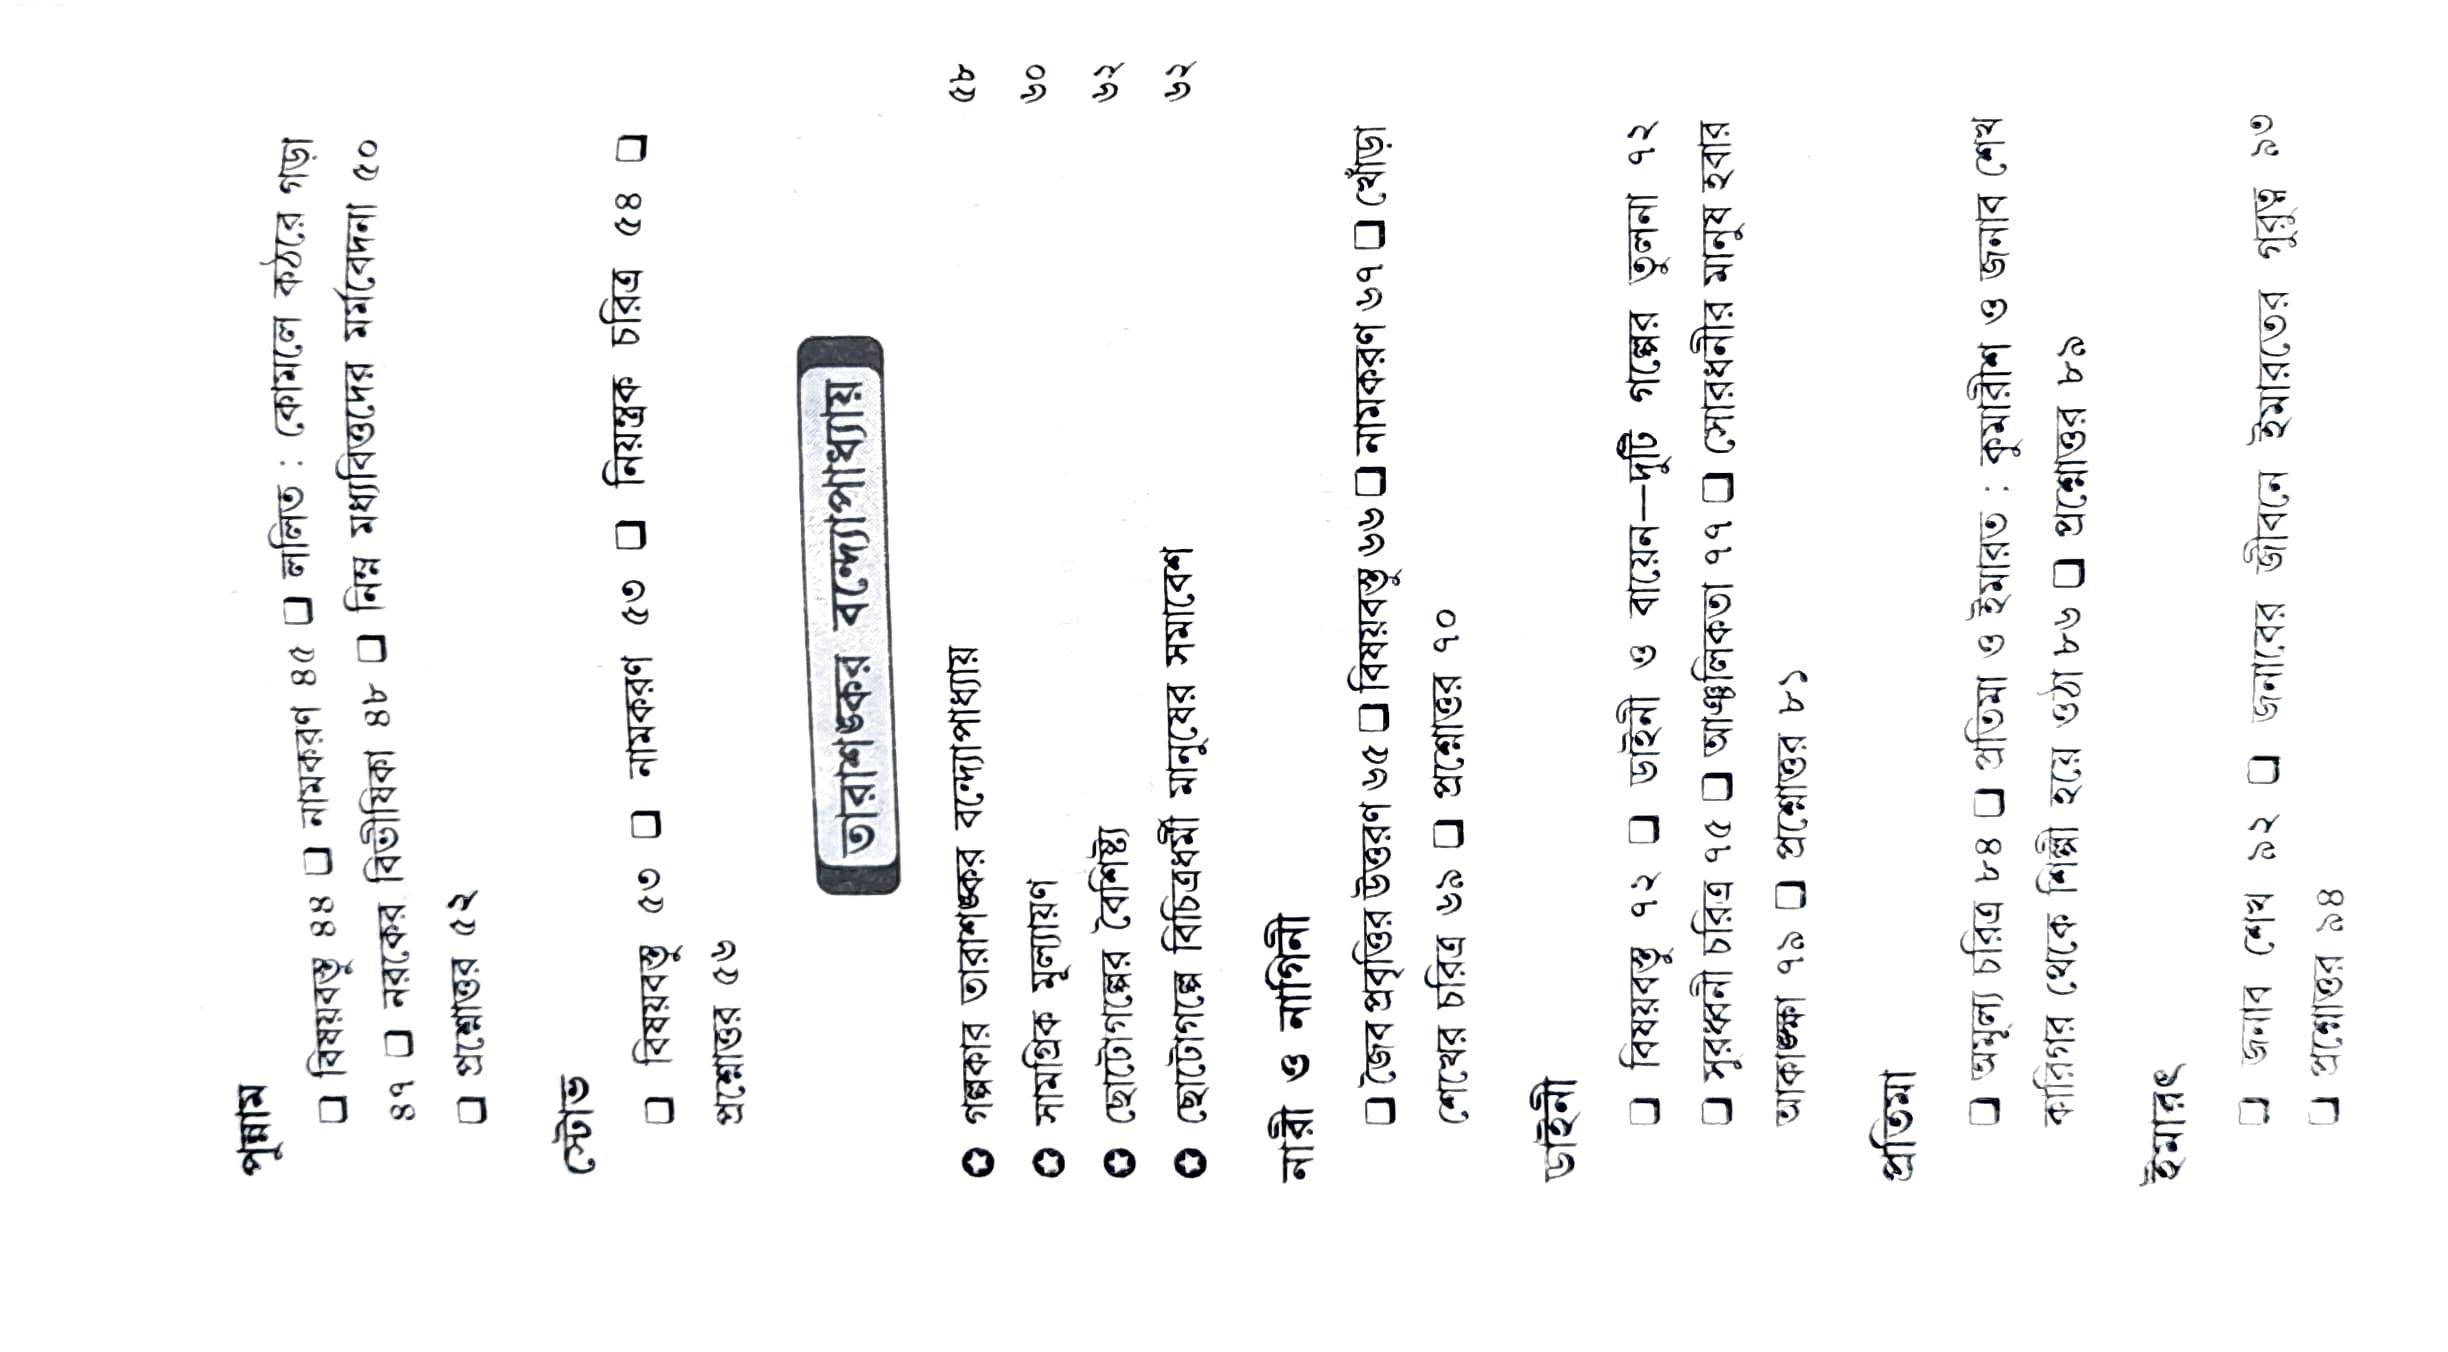 পুন্নাম
❑ বিষয়বস্তু ৪৪ ❑ নামকরণ ৪৫ ❑ ললিত : কোমলে কঠরে গড়া
৪৭ ❑ নরকের বিভীষিকা ৪৮ ❑ নিম্ন মধ্যবিত্তদের মর্মবেদনা ৫০
❑ প্রশ্নোত্তর ৫২
স্টোভ
❑ বিষয়বস্তু ৫৩ ❑ নামকরণ ৫৩ ❑ নিয়ন্ত্রক চরিত্র ৫৪ ❑
প্রশ্নোত্তর ৫৬
তারাশঙ্কর বন্দ্যোপাধ্যায়
✪ গল্পকার তারাশঙ্কর বন্দ্যোপাধ্যায় ৫৮
✪ সামগ্রিক মূল্যায়ণ ৬০
✪ ছোটোগল্পের বৈশিষ্ট্য ৬২
✪ ছোটোগল্পে বিচিত্রধর্মী মানুষের সমাবেশ ৬২
নারী ও নাগিনী
❑ জৈব প্রবৃত্তির উত্তরণ ৬৫ ❑ বিষয়বস্তু ৬৬ ❑ নামকরণ ৬৭ ❑ খোঁড়া
শেখের চরিত্র ৬৯ ❑ প্রশ্নোত্তর ৭০
ডাইনী
❑ বিষয়বস্তু ৭২ ❑ ডাইনী ও বায়েন—দুটি গল্পের তুলনা ৭২
❑ সুরধ্বনী চরিত্র ৭৫ ❑ আঞ্চলিকতা ৭৭ ❑ সোরধনীর মানুষ হবার
আকাঙ্ক্ষা ৭৯ ❑ প্রশ্নোত্তর ৮১
প্রতিমা
❑ অমূল্য চরিত্র ৮৪ ❑ প্রতিমা ও ইমারত : কুমারীশ ও জনাব শেখ
কারিগর থেকে শিল্পী হয়ে ওঠা ৮৬ ❑ প্রশ্নোত্তর ৮৯
ইমারৎ
❑ জনাব শেখ ৯২ ❑ জনাবের জীবনে ইমারতের গুরুত্ব ৯৩
❑ প্রশ্নোত্তর ৯৪